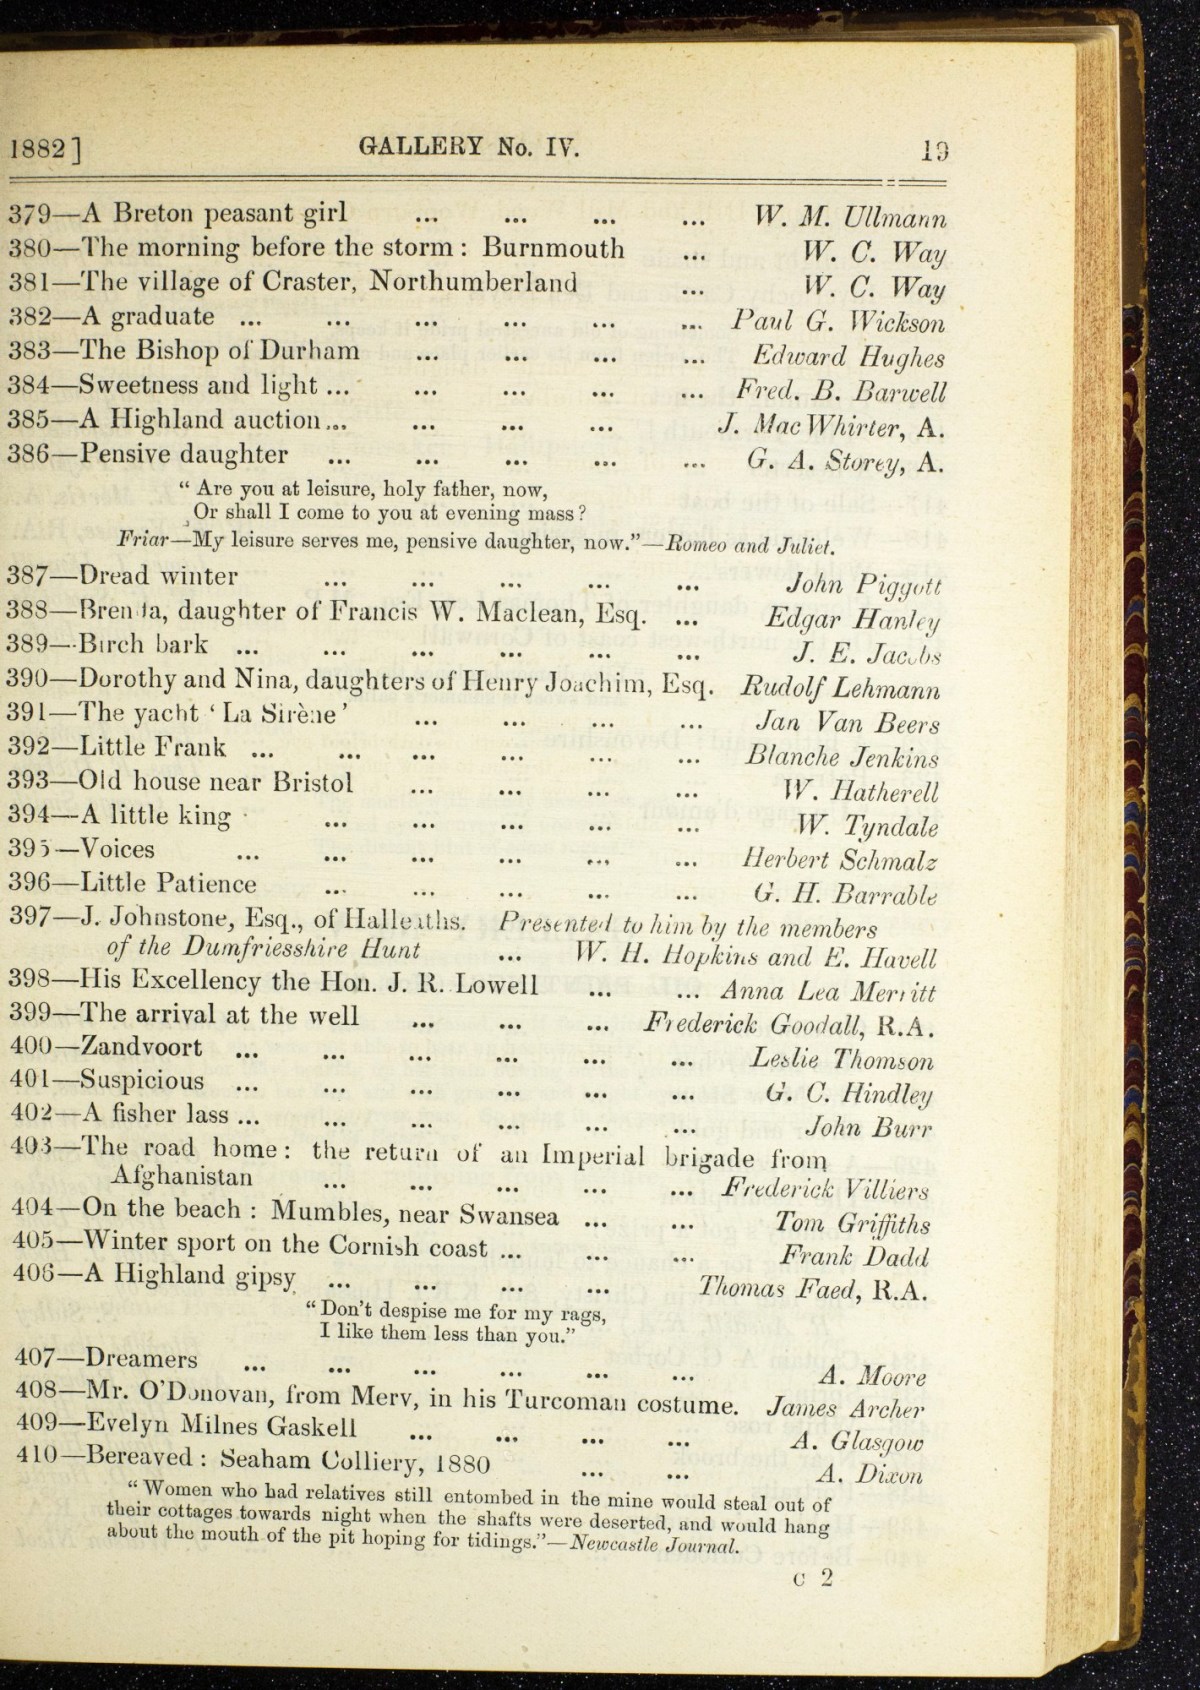 1882] GALLERY No. IV. 19
379—A Breton peasant girl ... ... ... ... W. M. Ullmann
380—The morning before the storm : Burnmouth ... W. C. Way
381—The village of Craster, Northumberland ... W. C. Way
382—A graduate ... ... ... ... ... ... Paul G. Wickson
383—The Bishop of Durham ... ... ... ... Edward Hughes
384—Sweetness and light ... ... ... ... ... Fred. B. Barwell
385—A Highland auction ... ... ... ... J. MacWhirter, A.
386—Pensive daughter ... ... ... ... ... G. A. Storey, A.
“ Are you at leisure, holy father, now,
Or shall I come to you at evening mass ?
Friar—My leisure serves me, pensive daughter, now.”—Romeo and Juliet.
387—Dread winter ... ... ... ... ... John Piggott
388—Brenda, daughter of Francis W. Maclean, Esq. ... Edgar Hanley
389—Birch bark ... ... ... ... ... ... J. E. Jacobs
390—Dorothy and Nina, daughters of Henry Joachim, Esq. Rudolf Lehmann
391—The yacht ‘ La Sirène ’ ... ... ... ... Jan Van Beers
392—Little Frank ... ... ... ... ... ... Blanche Jenkins
393—Old house near Bristol ... ... ... ... W. Hatherell
394—A little king ... ... ... ... ... W. Tyndale
395—Voices ... ... ... ... ... ... Herbert Schmalz
396—Little Patience ... ... ... ... ... G. H. Barrable
397—J. Johnstone, Esq., of Halleaths. Presented to him by the members
of the Dumfriesshire Hunt ... W. H. Hopkins and E. Havell
398—His Excellency the Hon. J. R. Lowell ... ... Anna Lea Merritt
399—The arrival at the well ... ... ... Frederick Goodall, R.A.
400—Zandvoort ... ... ... ... ... ... Leslie Thomson
401—Suspicious ... ... ... ... ... ... G. C. Hindley
402—A fisher lass ... ... ... ... ... ... John Burr
403—The road home : the return of an Imperial brigade from
Afghanistan ... ... ... ... ... Frederick Villiers
404—On the beach : Mumbles, near Swansea ... ... Tom Griffiths
405—Winter sport on the Cornish coast ... ... ... Frank Dadd
406—A Highland gipsy ... ... ... ... Thomas Faed, R.A.
“ Don’t despise me for my rags,
I like them less than you.”
407—Dreamers ... ... ... ... ... ... A. Moore
408—Mr. O’Donovan, from Merv, in his Turcoman costume. James Archer
409—Evelyn Milnes Gaskell ... ... ... ... A. Glasgow
410—Bereaved : Seaham Colliery, 1880 ... ... A. Dixon
“ Women who had relatives still entombed in the mine would steal out of
their cottages towards night when the shafts were deserted, and would hang
about the mouth of the pit hoping for tidings.”—Newcastle Journal.
C 2